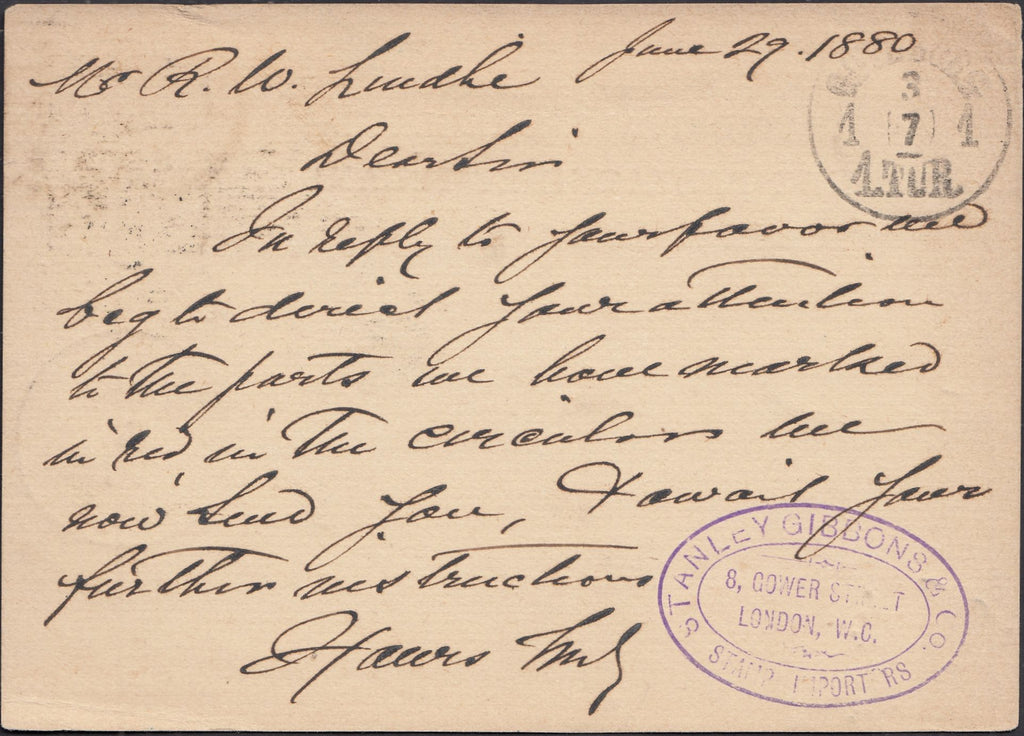 June 29. 1880
Mr R. W.
Dear Sir
In reply to your favor we
beg to direct your attention
to the parts we have marked
in red in the circulars we
now send you, & await your
further instructions
Yours Truly
3
1 7 1
1.TUR.
STANLEY GIBBONS & CO.
8, GOWER STREET
LONDON, W.C.
STAMP IMPORTERS